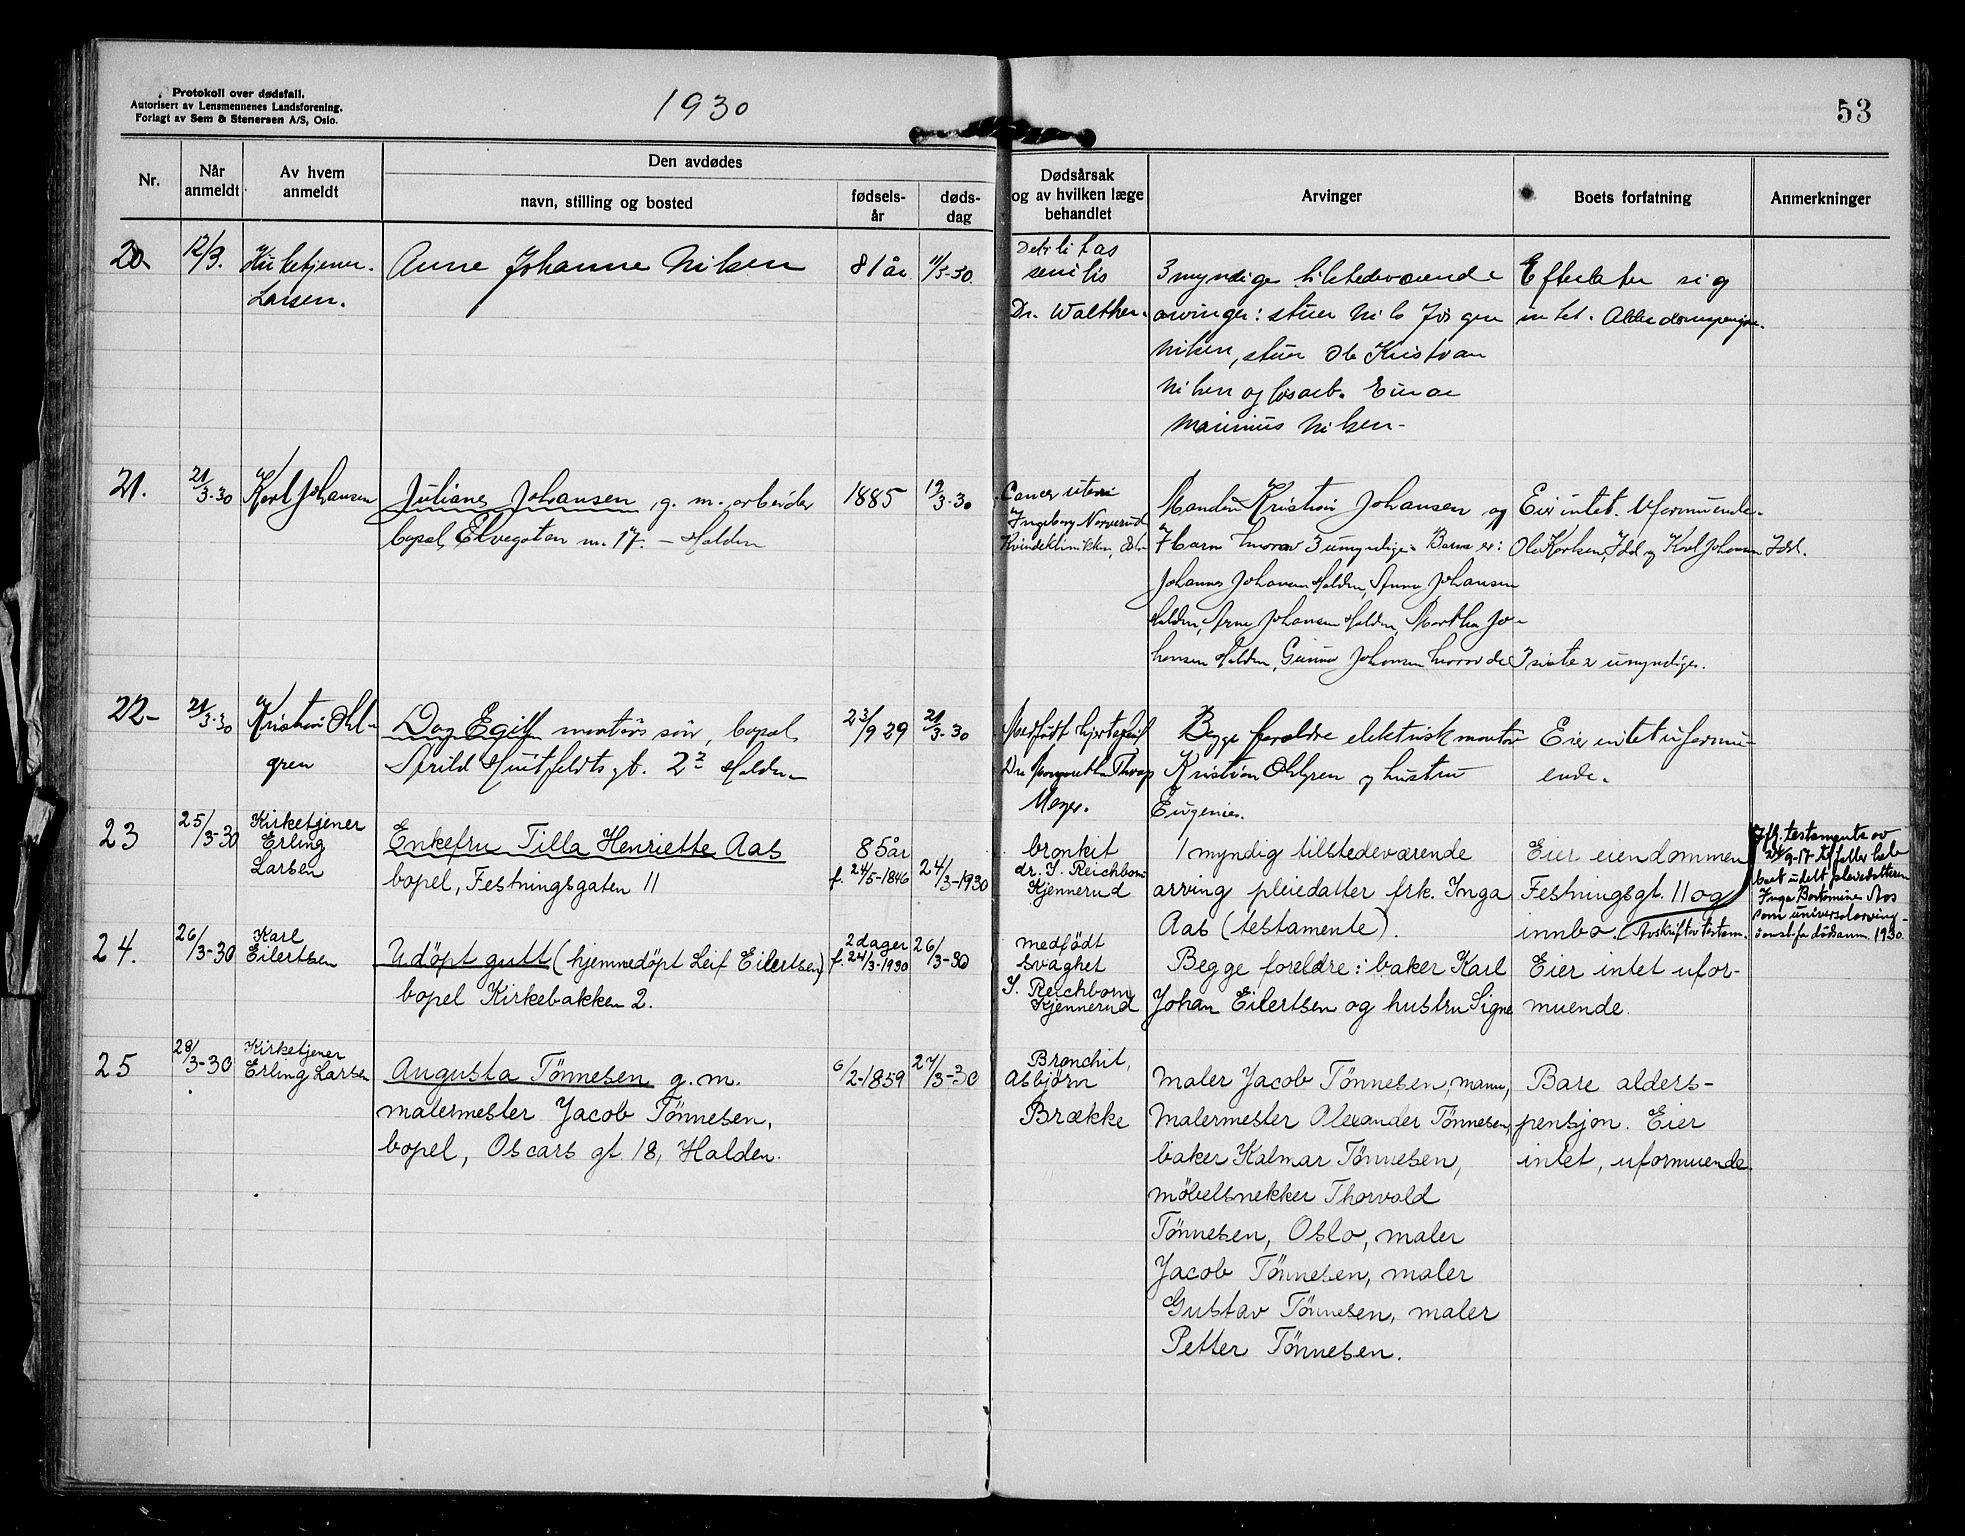 Protokoll over dødsfall.
Autorisert av Lensmennenes Landsforening.
Forlagt av Sem & Stenersen A/S, Oslo.
1930
53
Nr.
Når anmeldt
Av hvem anmeldt
Den avdødes
navn, stilling og bosted
fødsels-år
døds-dag
Dødsårsak og av hvilken læge behandlet
Arvinger
Boets forfatning
Anmerkninger
20.
12/3.
Kirketjener
Larsen.
Anne Johanne Nilsen
81 år
11/3-30.
Debilitas
senilis
Dr. Walther.
3 myndige tilstedeværende
arvinger: stuer Nils Jørgen
Nilsen, stuer Ole Kristian
Nilsen og løsarb. Einar
Marinius Nilsen-
Efterlater sig
intet. Alderdomspensjon.
21.
21/3-30
Karl Johansen
Juliane Johansen, g. m. arbeider
bopel, Elvegaten nr. 17. - Halden
1885
19/3-30
Cancer uteri
Ingeborg Norverud
Kvindeklinikken, Oslo
Manden Kristian Johansen og
7 barn hvorav 3 umyndige. Barna er:
Johannes Johansen Halden, Anna Johansen
Halden, Arne Johansen Halden, Martha Jo-
hansen Halden, Gunnar Johansen hvorav de 3 siste er umyndige.
Eier intet. Uformuende.
Ole Karlsen, Idd og Karl Johansen Idd.
22-
21/3-30
Kristian Ohl-
gren
Dag Egill montørs søn, bopel
Arild Huitfeldts gt. 2 Halden
23/9 29
21/3-30
Medfødt hjertefeil
Dr. Margrethe Thrap
Meyer.
Begge foreldre elektrisk montør
Kristian Ohlgren og hustru
Eugenie.
Eier intet uformu-
ende.
23
25/3-30
Kirketjener
Erling
Larsen
Enkefru Tilla Henriette Aas
bopel, Festningsgaten 11
85 år
f. 24/5-1846
24/3-1930
bronkit
dr. I. Reichborn
Kjennerud
1 myndig tilstedeværende
arving pleiedatter frk. Inga
Aas (testamente).
Eier eiendommen
Festningsgt. 11 og
innbo. (Avskrift av testam.
Ifg. testamente av
24/9-17 tilfaller hele
boet udelt pleiedatteren
Inga Aas
som universalarving
1930.
24.
26/3-30
Karl
Eilertsen
Udöpt gutt (hjemmedöpt Leif Eilertsen)
bopel Kirkebakken 2.
2 dager
f. 24/3-1930
26/3-30
medfödt
svaghet
I. Reichborn
Kjennerud
Begge foreldre: baker Karl
Johan Eilertsen og hustru Signe
Eier intet ufor-
muende.
25
28/3-30
Kirketjener
Erling Larsen
Augusta Tönnesen g.m.
malermester Jacob Tönnesen,
bopel, Oscars gt. 18, Halden.
6/2-1859
27/3-30
Bronchit,
Asbjörn
Brække
Maler Jacob Tönnesen, mann,
Malermester Olexander Tönnesen,
baker Kalmar Tönnesen,
möbelsnekker Thorvald
Tönnesen, Oslo, maler
Jacob Tönnesen, maler
Gustav Tönnesen, maler
Petter Tönnesen.
Bare alders-
pensjon. Eier
intet, uformuende.